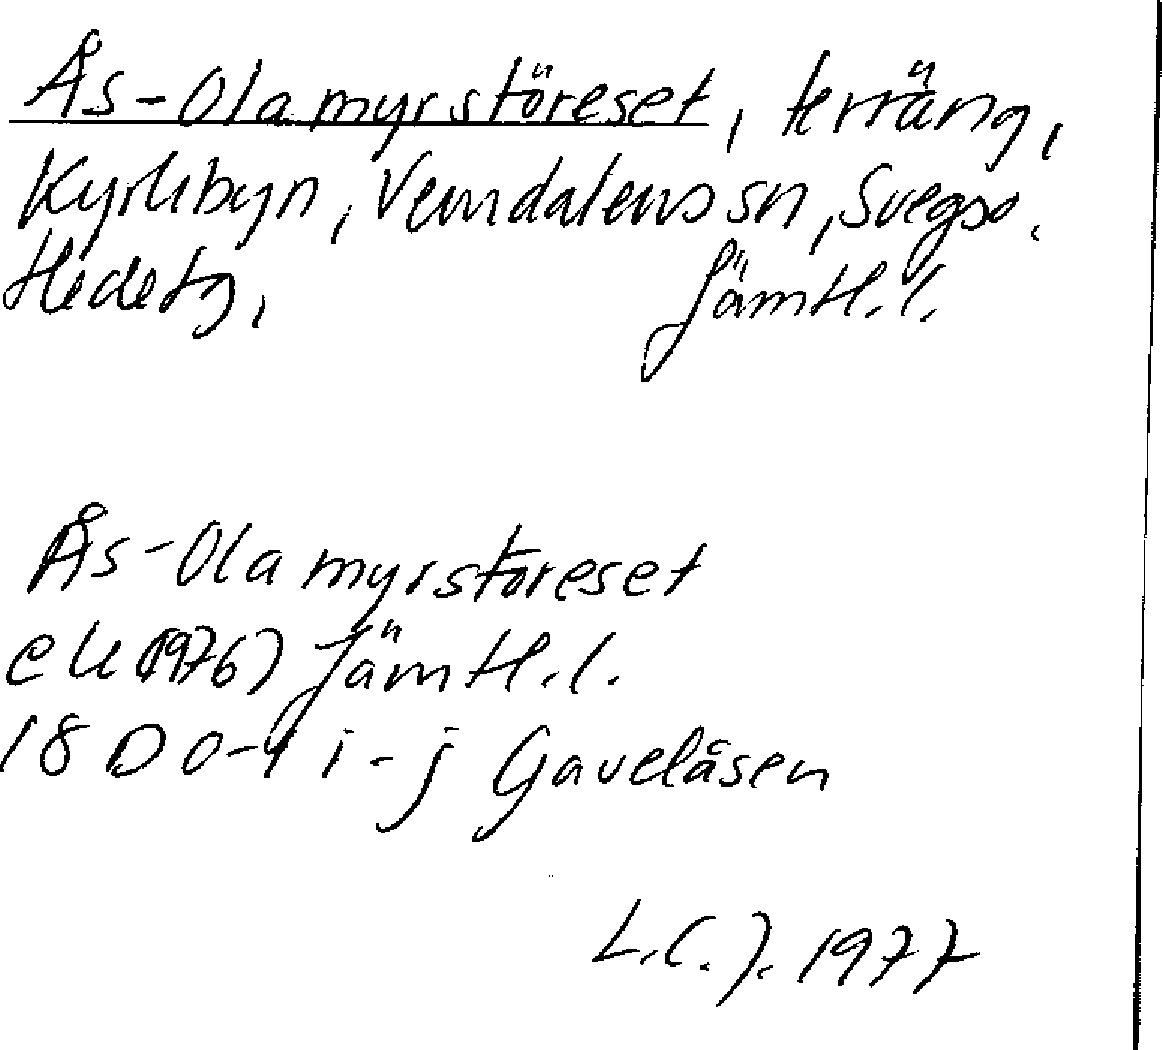 Ås-Olamyrstöreset, terräng,
Kyrkbyn, Vemdalens sn, Svegs
Hedetg, Jämtl. l.
Ås-Olamyrstöreset
ek (1976) Jämtl. l.
18 D 0-1 i-j Gaveläsen
L.C.J. 1977